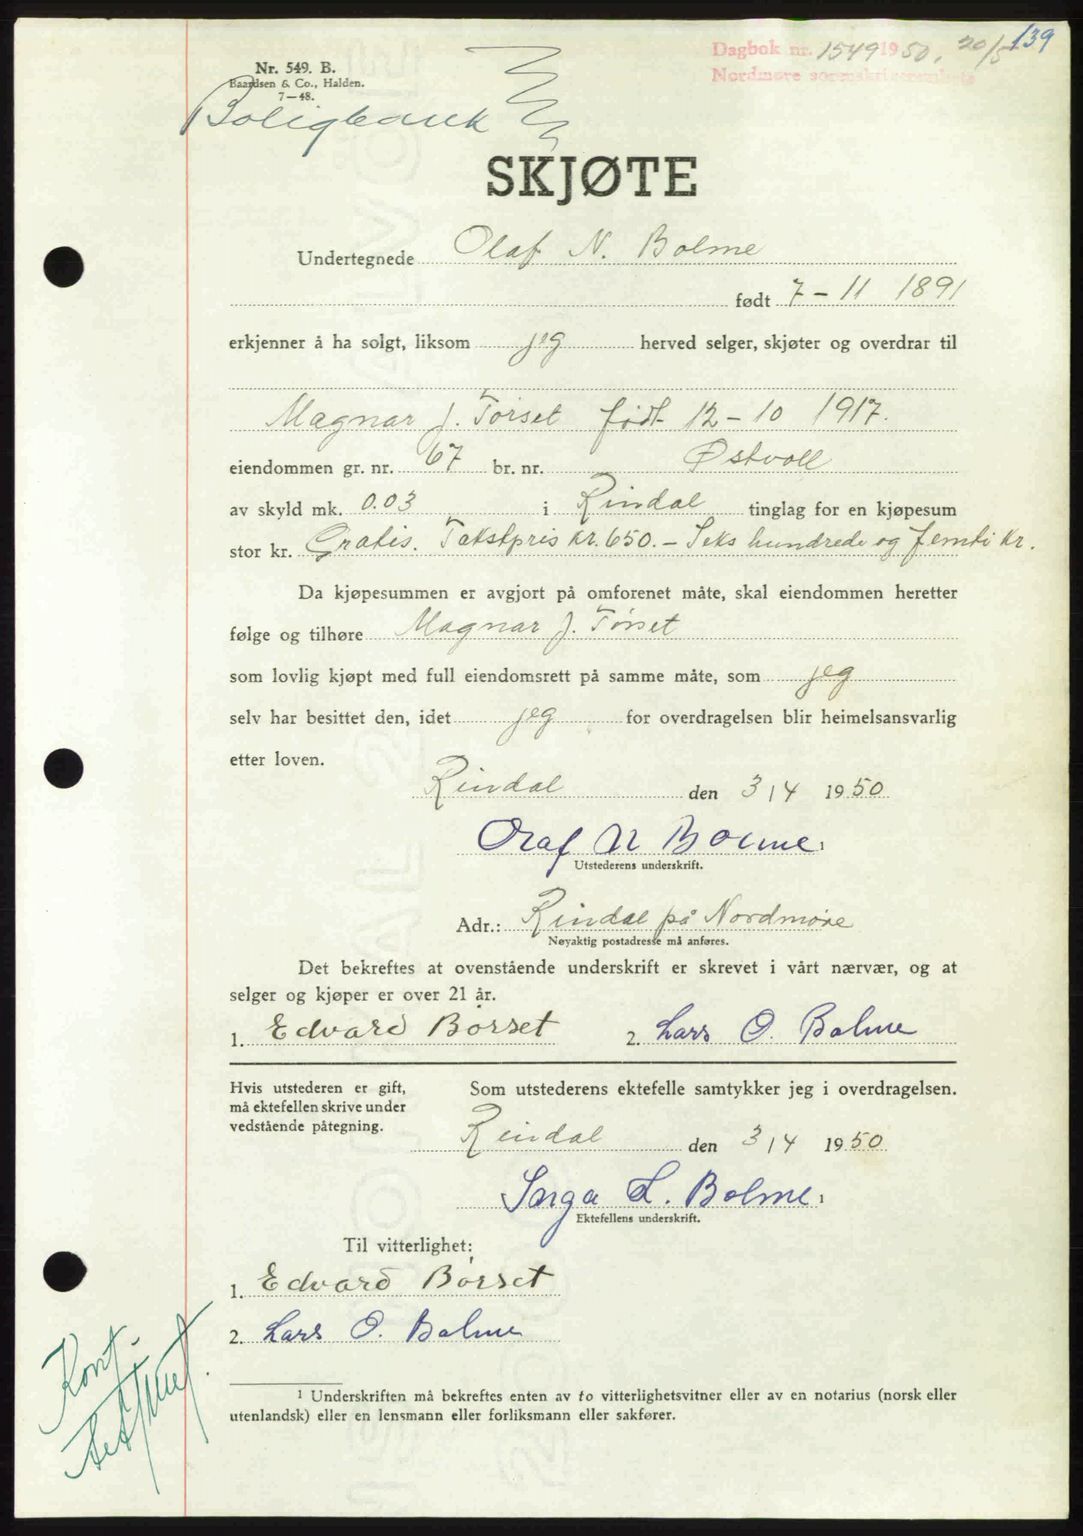 139
Dagbok nr. 1549 1950. 20/5
Nordmøre sorenskriverembete
Nr. 549. B.
Baardsen & Co., Halden.
7—48.
Boligbank
SKJØTE
Undertegnede Olaf N. Bolme
født 7 - 11 1891
erkjenner å ha solgt, liksom jeg herved selger, skjøter og overdrar til
Magnar J. Tørset født 12 - 10 1917.
eiendommen gr. nr. 67 br. nr. Østvoll
av skyld mk. 0.03 i Rindal tinglag for en kjøpesum
stor kr. Gratis. Takstpris kr. 650.- Seks hundrede og femti kr.
Da kjøpesummen er avgjort på omforenet måte, skal eiendommen heretter
følge og tilhøre Magnar J. Tørset
som lovlig kjøpt med full eiendomsrett på samme måte, som jeg
selv har besittet den, idet jeg for overdragelsen blir heimelsansvarlig
etter loven.
Rindal den 3/4 1950
Olaf N Bolme ¹
Utstederens underskrift.
Adr.: Rindal på Nordmøre
Nøyaktig postadresse må anføres.
Det bekreftes at ovenstående underskrift er skrevet i vårt nærvær, og at
selger og kjøper er over 21 år.
1. Edvard Børset 2. Lars O. Bolme
Hvis utstederen er gift, Som utstederens ektefelle samtykker jeg i overdragelsen.
må ektefellen skrive under
vedstående påtegning.
Rindal den 3/4 1950
L. Bolme ¹
Ektefellens underskrift.
Til vitterlighet:
1. Edvard Børset
2. Lars O. Bolme
Kont.
¹ Underskriften må bekreftes enten av to vitterlighetsvitner eller av en notarius (norsk eller
utenlandsk) eller en lensmann eller forliksmann eller sakfører.